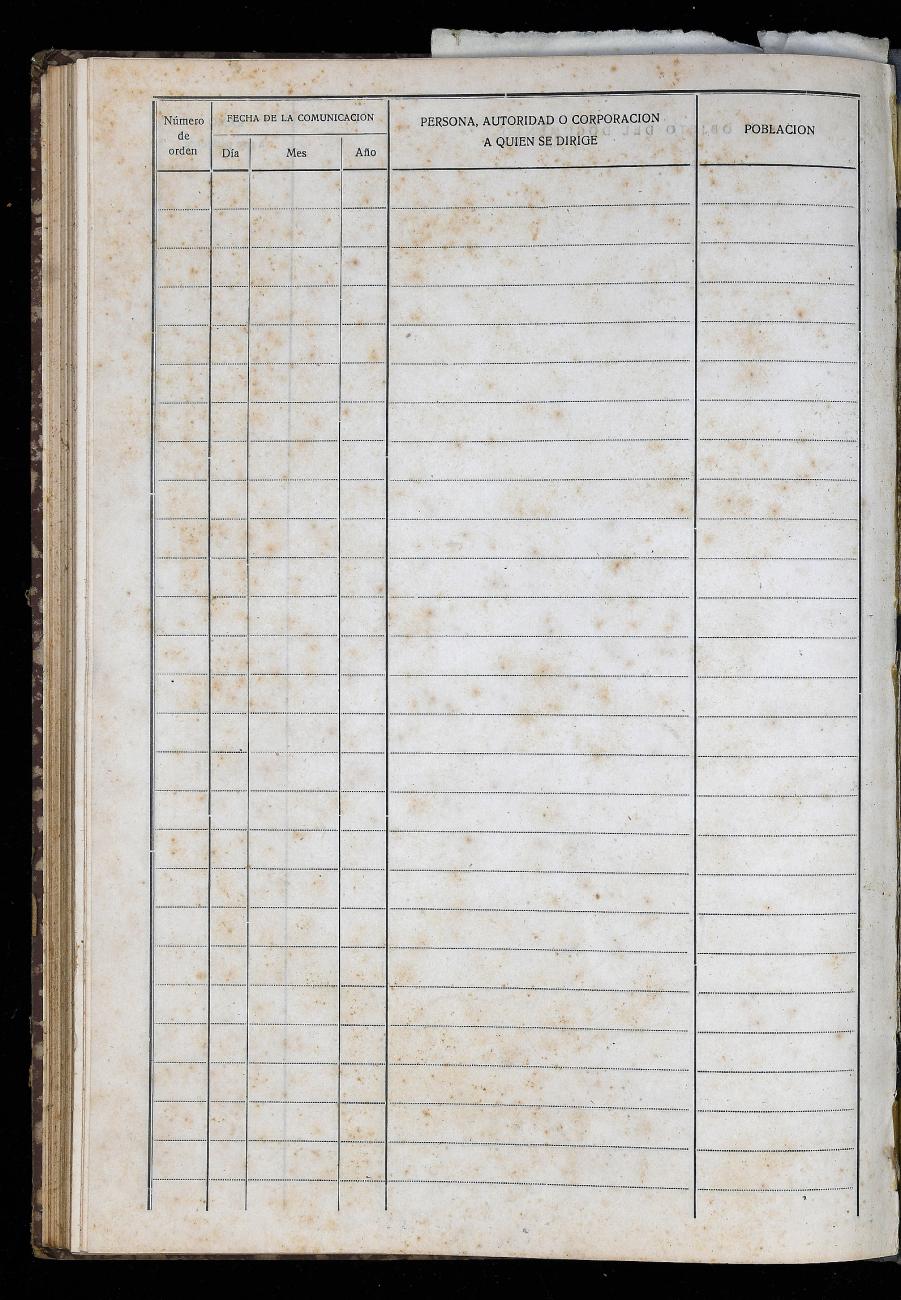 Número
de
orden
FECHA DE LA COMUNICACION
Día Mes Año
PERSONA, AUTORIDAD O CORPORACION
A QUIEN SE DIRIGE
POBLACION